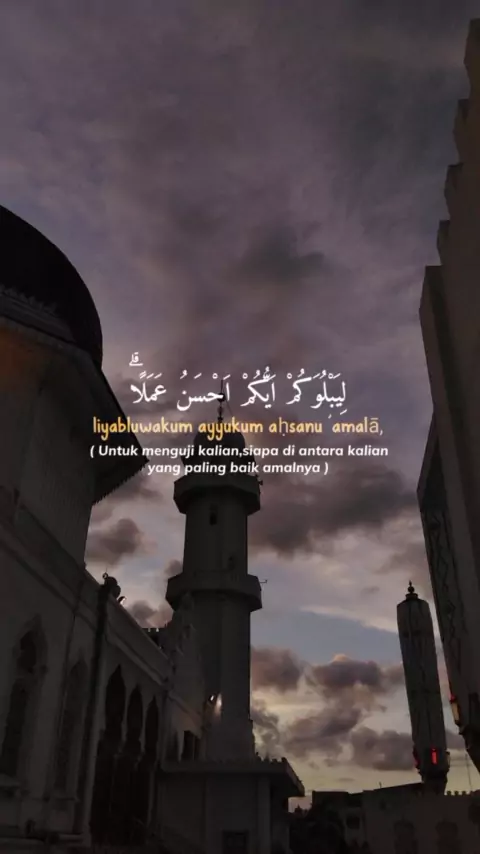 لِيَبْلُوَكُمْ اَيُّكُمْ اَحْسَنُ عَمَلًاۗ
liyabluwakum ayyukum aḥsanu ʿamalā,
( Untuk menguji kalian,siapa di antara kalian
yang paling baik amalnya )